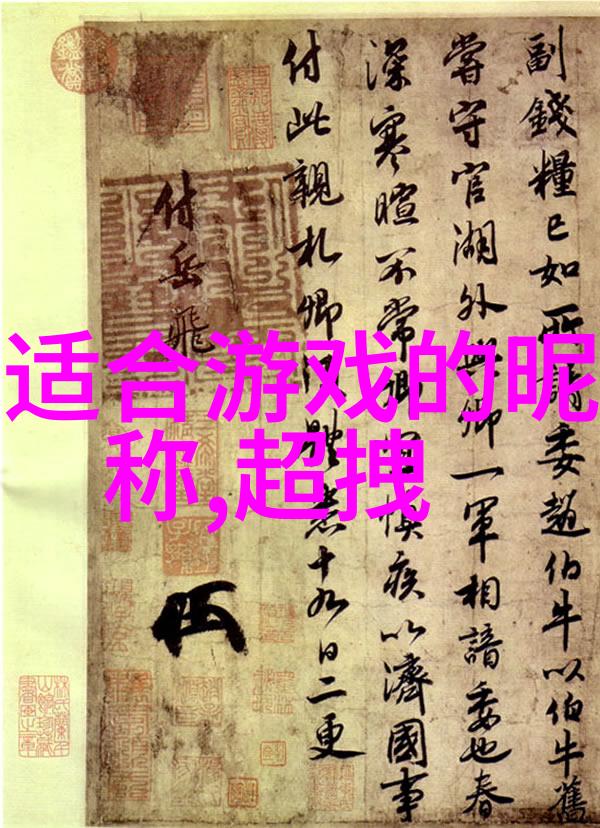 适合游戏的昵
称,超拽
副錢糧已如所請委趙伯牛以伯牛舊
嘗守官湖外與卿一軍相諳委也春
深寒暄不常卿宜慎疾以濟國事
付此親札卿須體悉十九日二更
付岳飛